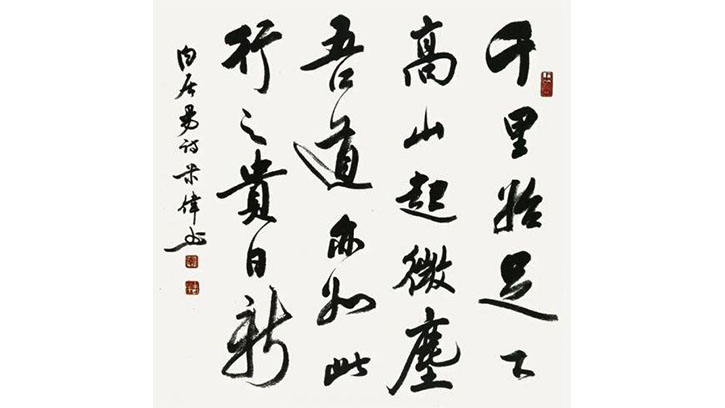 千里始足下
高山起微塵
吾道亦如此
行之貴日新
白居易詩 宋偉书